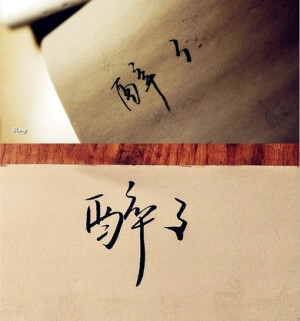 醉了
醉了